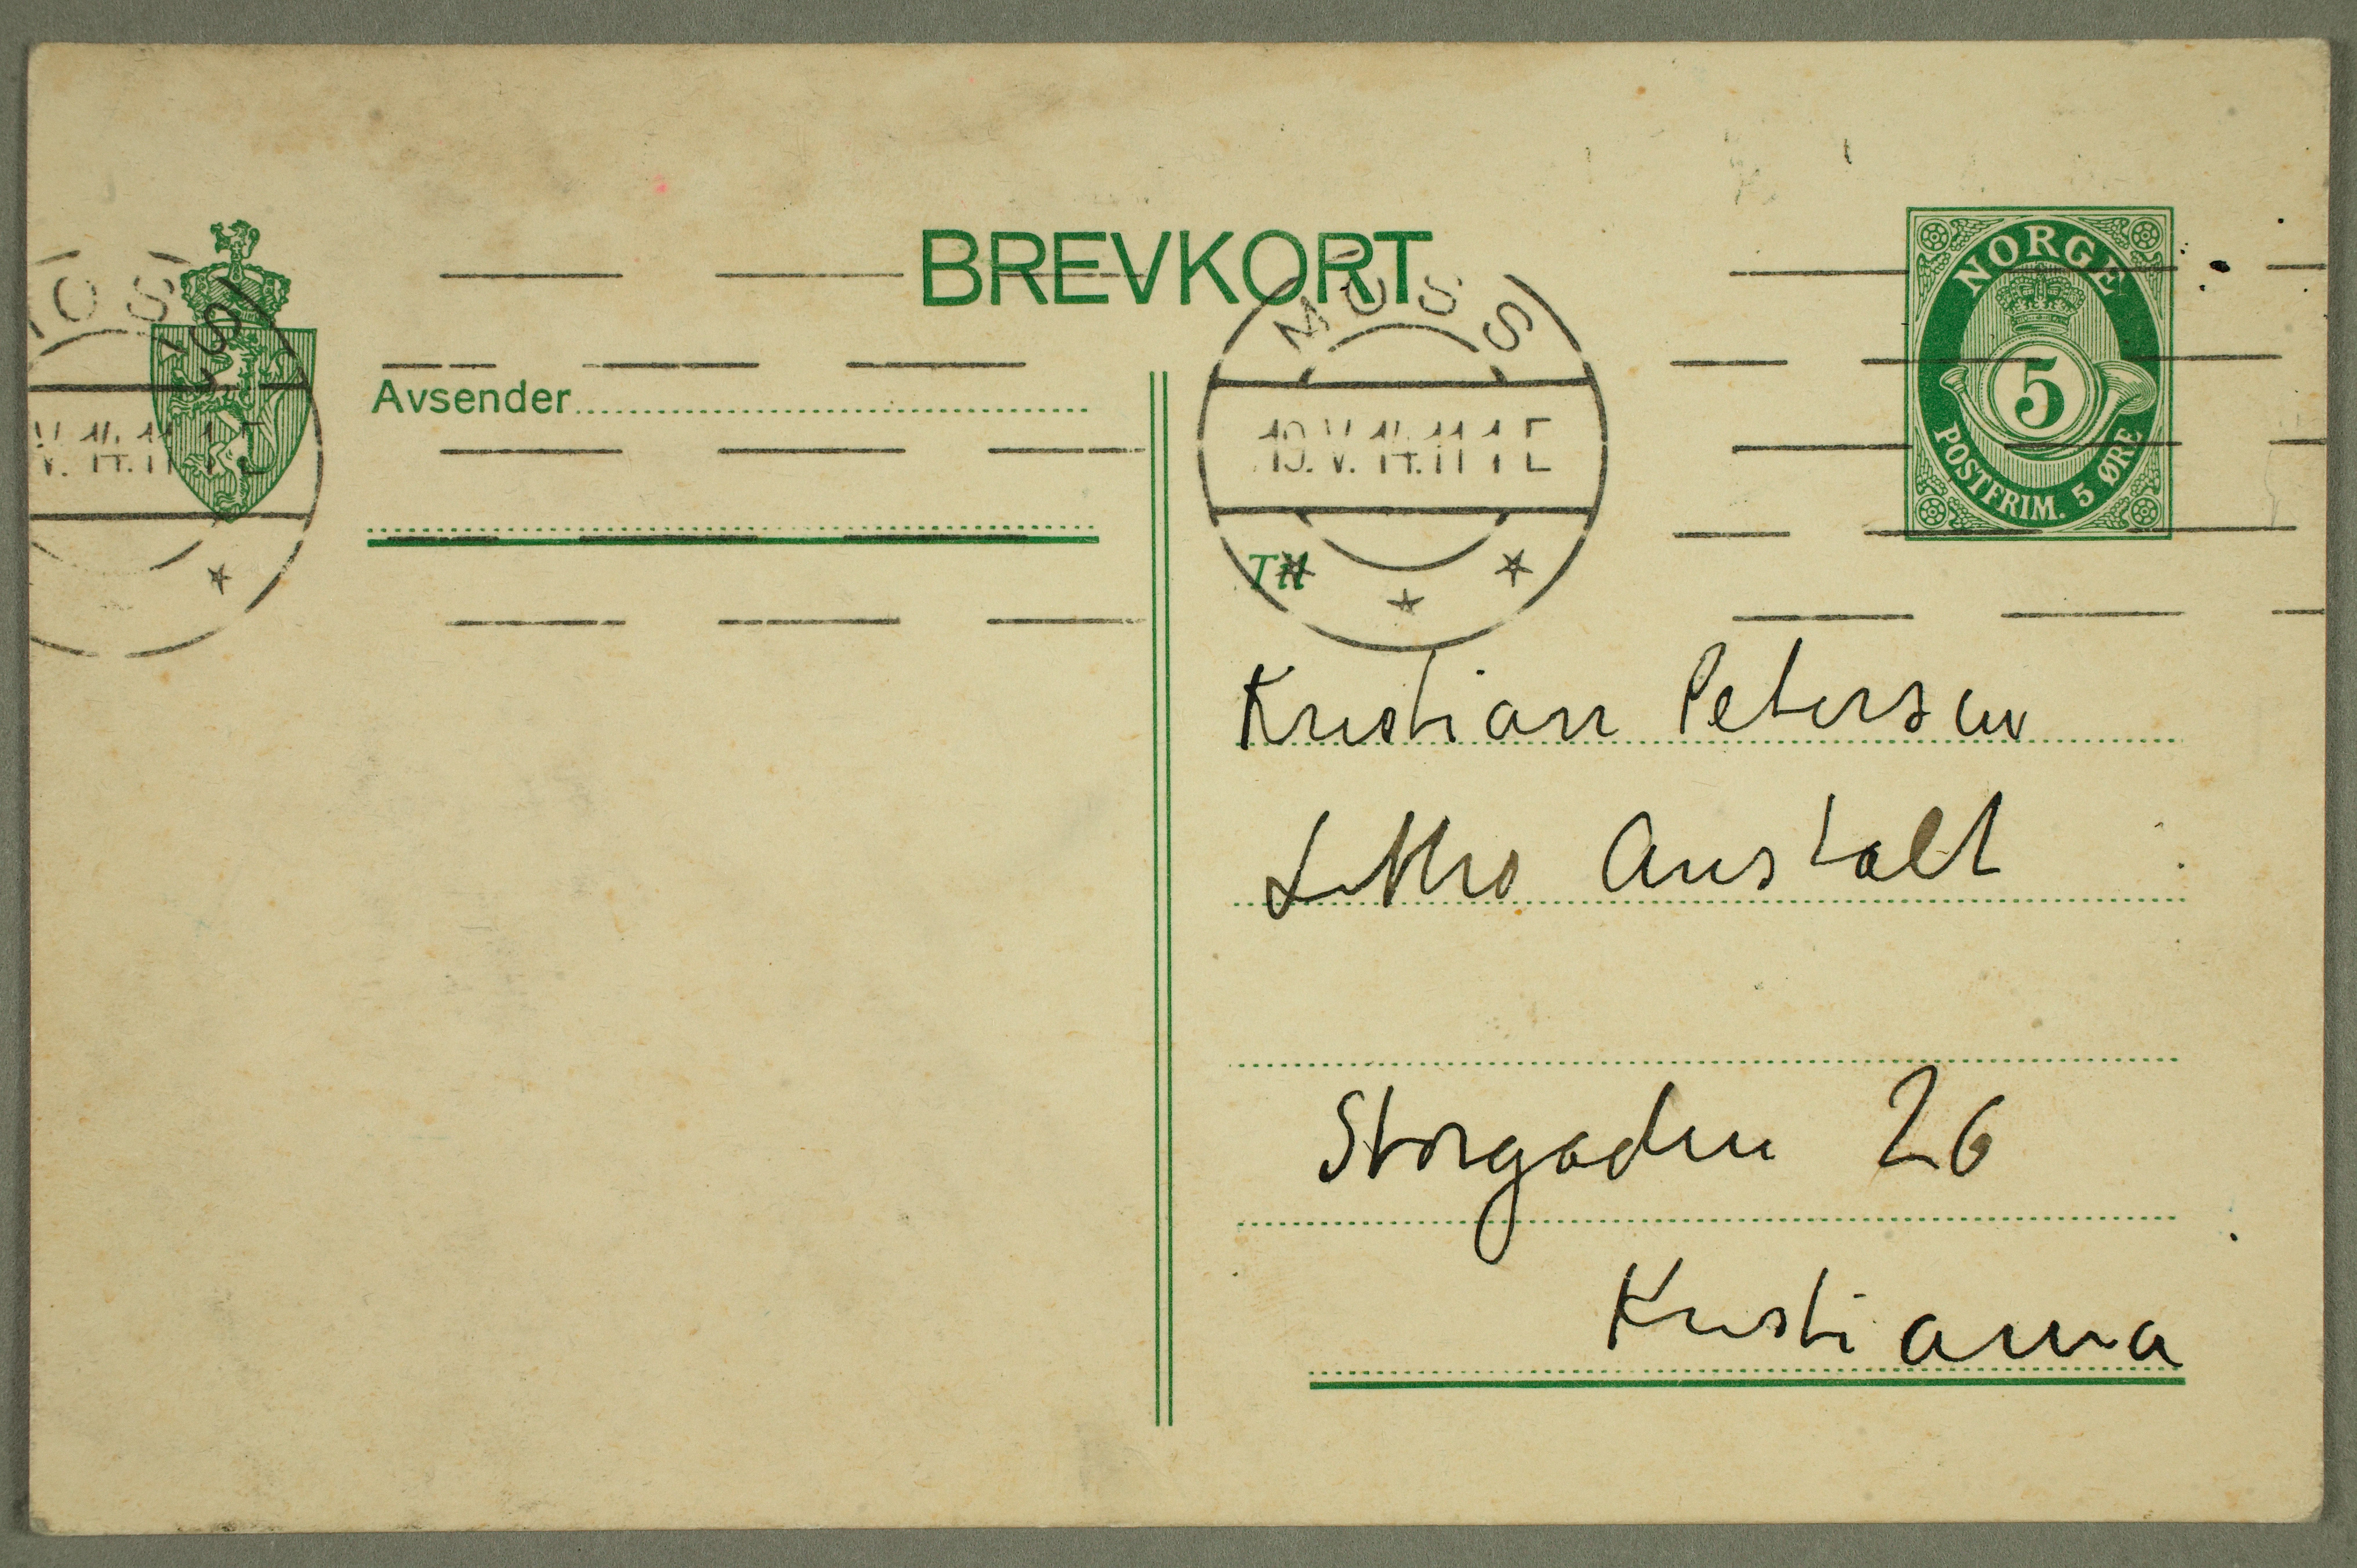 BREVKORT
NORGE
5
POSTFRIM. 5 ØRE
MOSS
19.V.14.11 1 E
OSS
V. 14.11 1 E
Avsender
Til
Kristian Petersen
Litho Anstalt
Storgaden 26
Kristiania